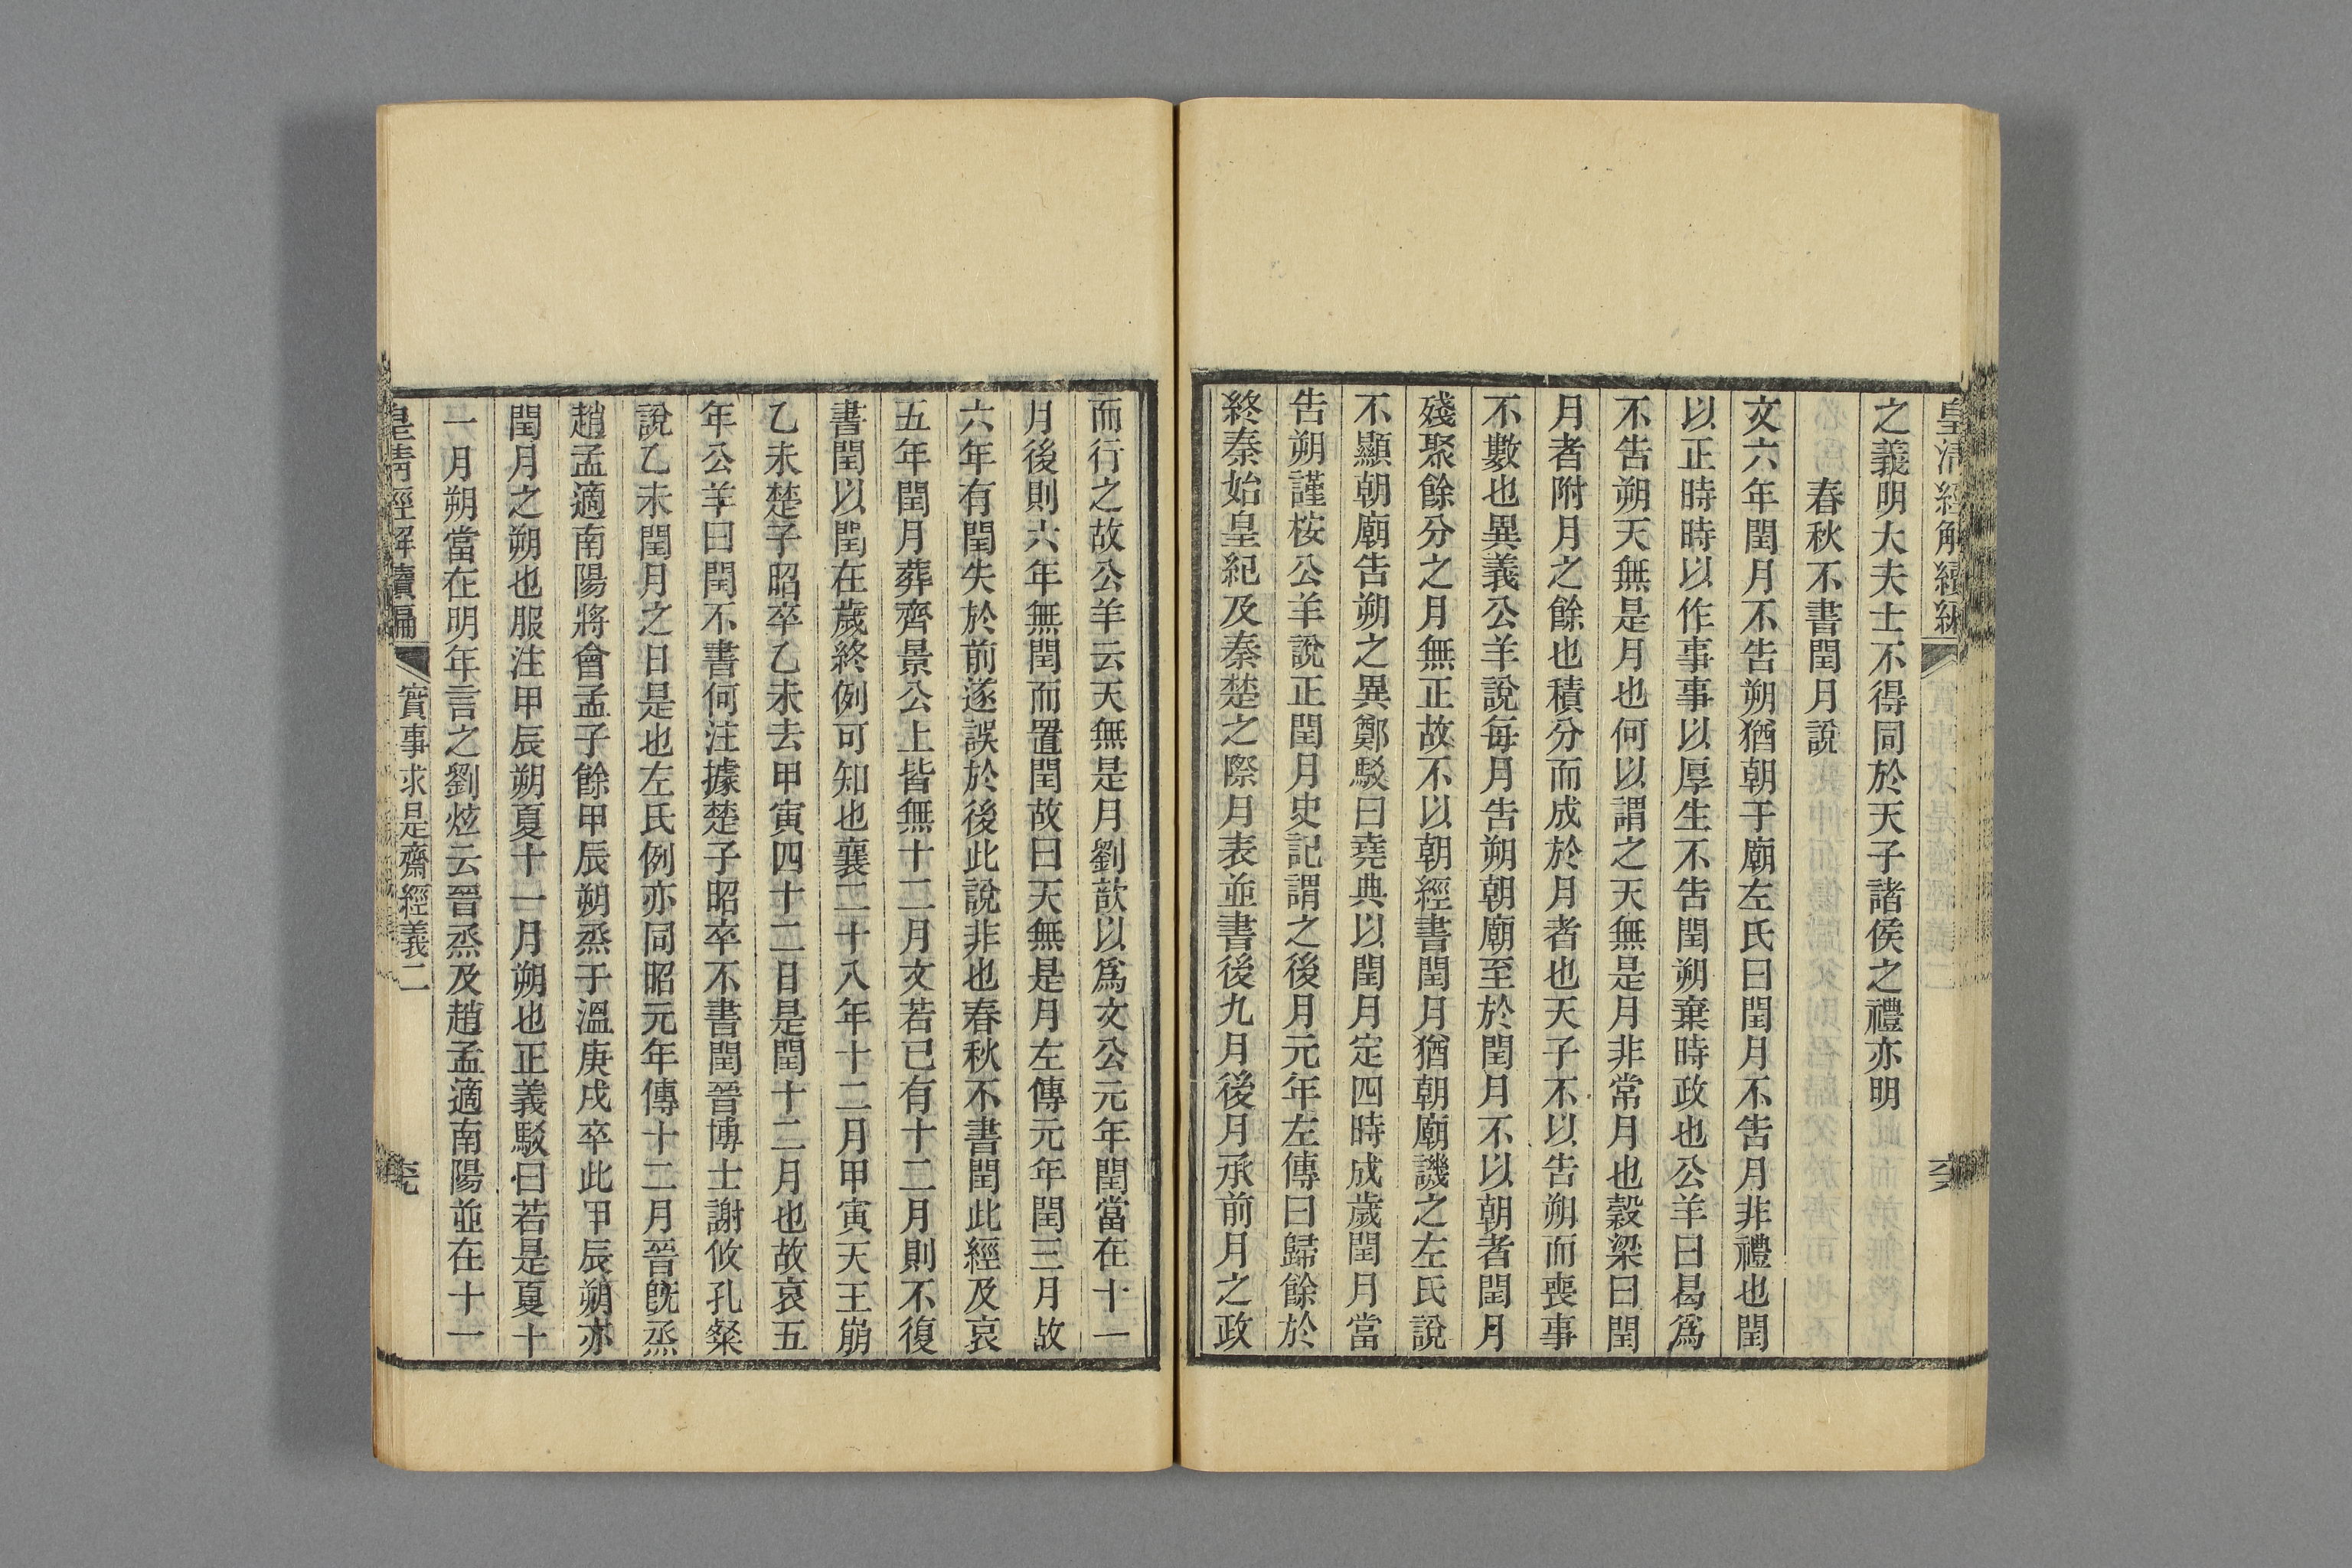 皇清經解續編
之義明大夫士不得同於天子諸侯之禮亦明
春秋不書閏月說
文六年閏月不告朔猶朝于廟左氏曰閏月不告月非禮也閏
以正時時以作事事以厚生不告閏朔棄時政也公羊曰曷爲
不告朔天無是月也何以謂之天無是月非常月也穀梁曰閏
月者附月之餘也積分而成於月者也天子不以告朔而喪事
不數也異義公羊說每月告朔朝廟至於閏月不以朝者閏月
殘聚餘分之月無正故不以朝經書閏月猶朝廟譏之左氏說
不顯朝廟告朔之異鄭駁曰堯典以閏月定四時成歲閏月當
告朔謹桉公羊說正閏月史記謂之後月元年左傳曰歸餘於
終秦始皇紀及秦楚之際月表並書後九月後月承前月之政
而行之故公羊云天無是月劉歆以爲文公元年閏當在十一
月後則六年無閏而置閏故曰天無是月左傳元年閏三月故
六年有閏失於前遂誤於後此說非也春秋不書閏此經及哀
五年閏月葬齊景公上皆無十二月文若已有十二月則不復
書閏以閏在歲終例可知也襄二十八年十二月甲寅天王崩
乙未楚子昭卒乙未去甲寅四十二日是閏十二月也故哀五
年公羊曰閏不書何注據楚子昭卒不書閏晉博士謝攸孔粲
說乙未閏月之日是也左氏例亦同昭元年傳十二月晉旣烝
趙孟適南陽將會孟子餘甲辰朔烝于溫庚戌卒此甲辰朔亦
閏月之朔也服注甲辰朔夏十一月朔也正義駁曰若是夏十
一月朔當在明年言之劉炫云晉烝及趙孟適南陽並在十一
皇清經解續編
實事求是齋經義二